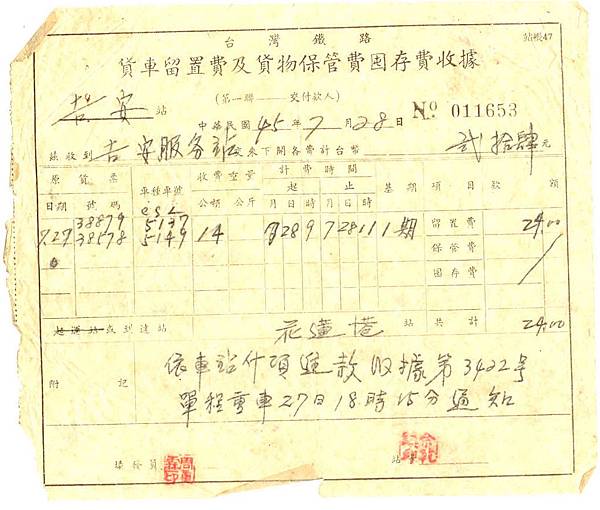 台灣鐵路
站帳47
貨車留置費及貨物保管費囤存費收據
(第一聯——交付款人)
吉安站
中華民國45年7月28日
No 011653
茲收到吉安服务站交來下開各費計台幣 弍拾肆元
原貨票 車種車號 收費空量 計費時間 基期 項目 款額
起 止
日期 號碼 公頓 公斤 月日時 月日時
38879 5137 留置費 24.00
7.27 38578 5149 14 7 28 9 7 28 11 1期
保管費
囤存費
起運站或到達站 花蓮港 站 共計 24.00
附記
依車站什項進款收據第3422号
單程重車27日18時15分通知
站